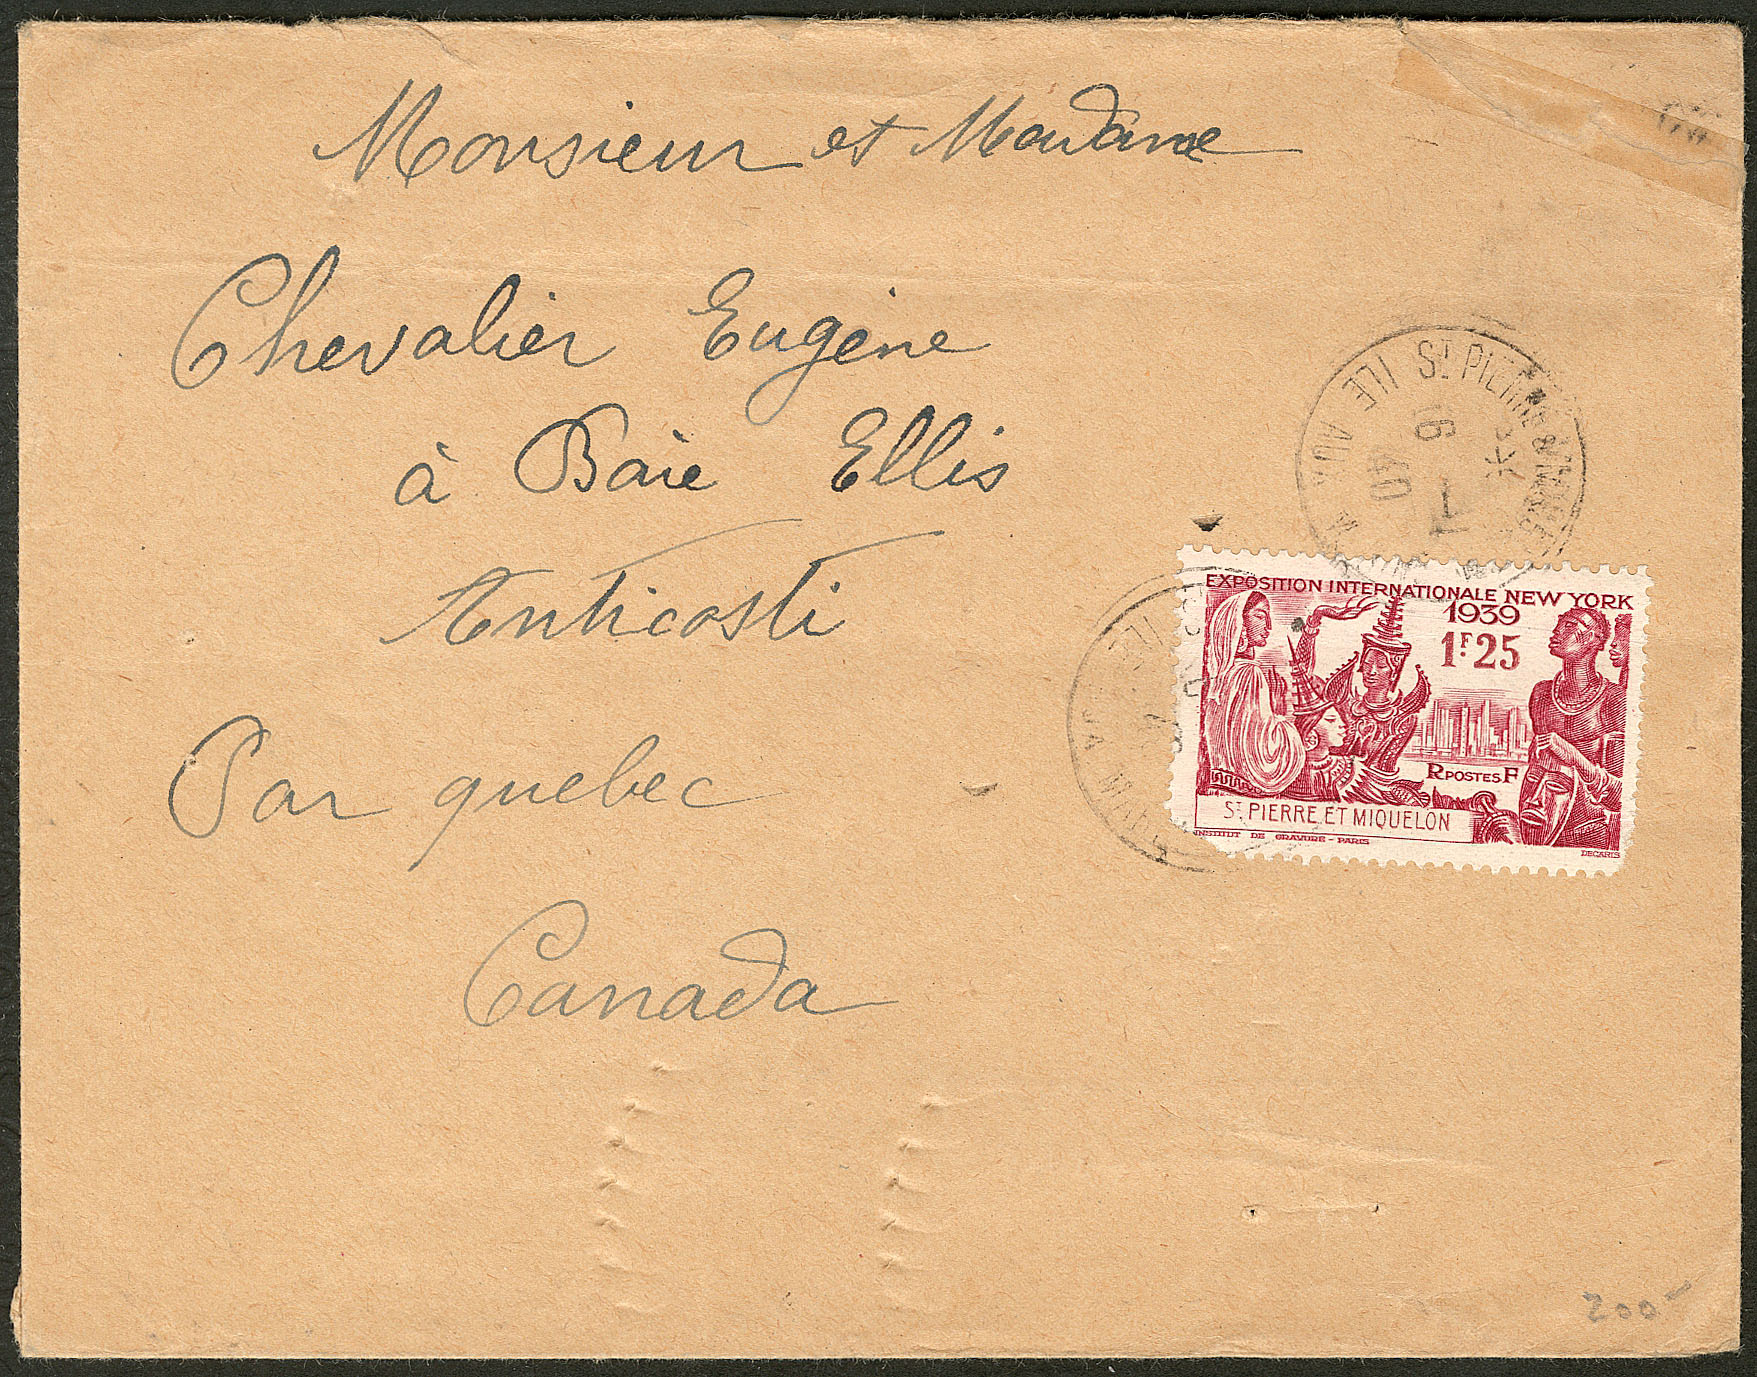 Monsieur et Madame
Chevalier Eugène
à Baie Ellis
Anticosti
Par quebec
Canada
ILE AUX MARINS
ST PIERRE & MIQUELON
16
7
40
EXPOSITION INTERNATIONALE NEW YORK
1939
1F.25
R POSTES F
ST PIERRE ET MIQUELON
INSTITUT DE GRAVURE - PARIS
DECARIS
200-